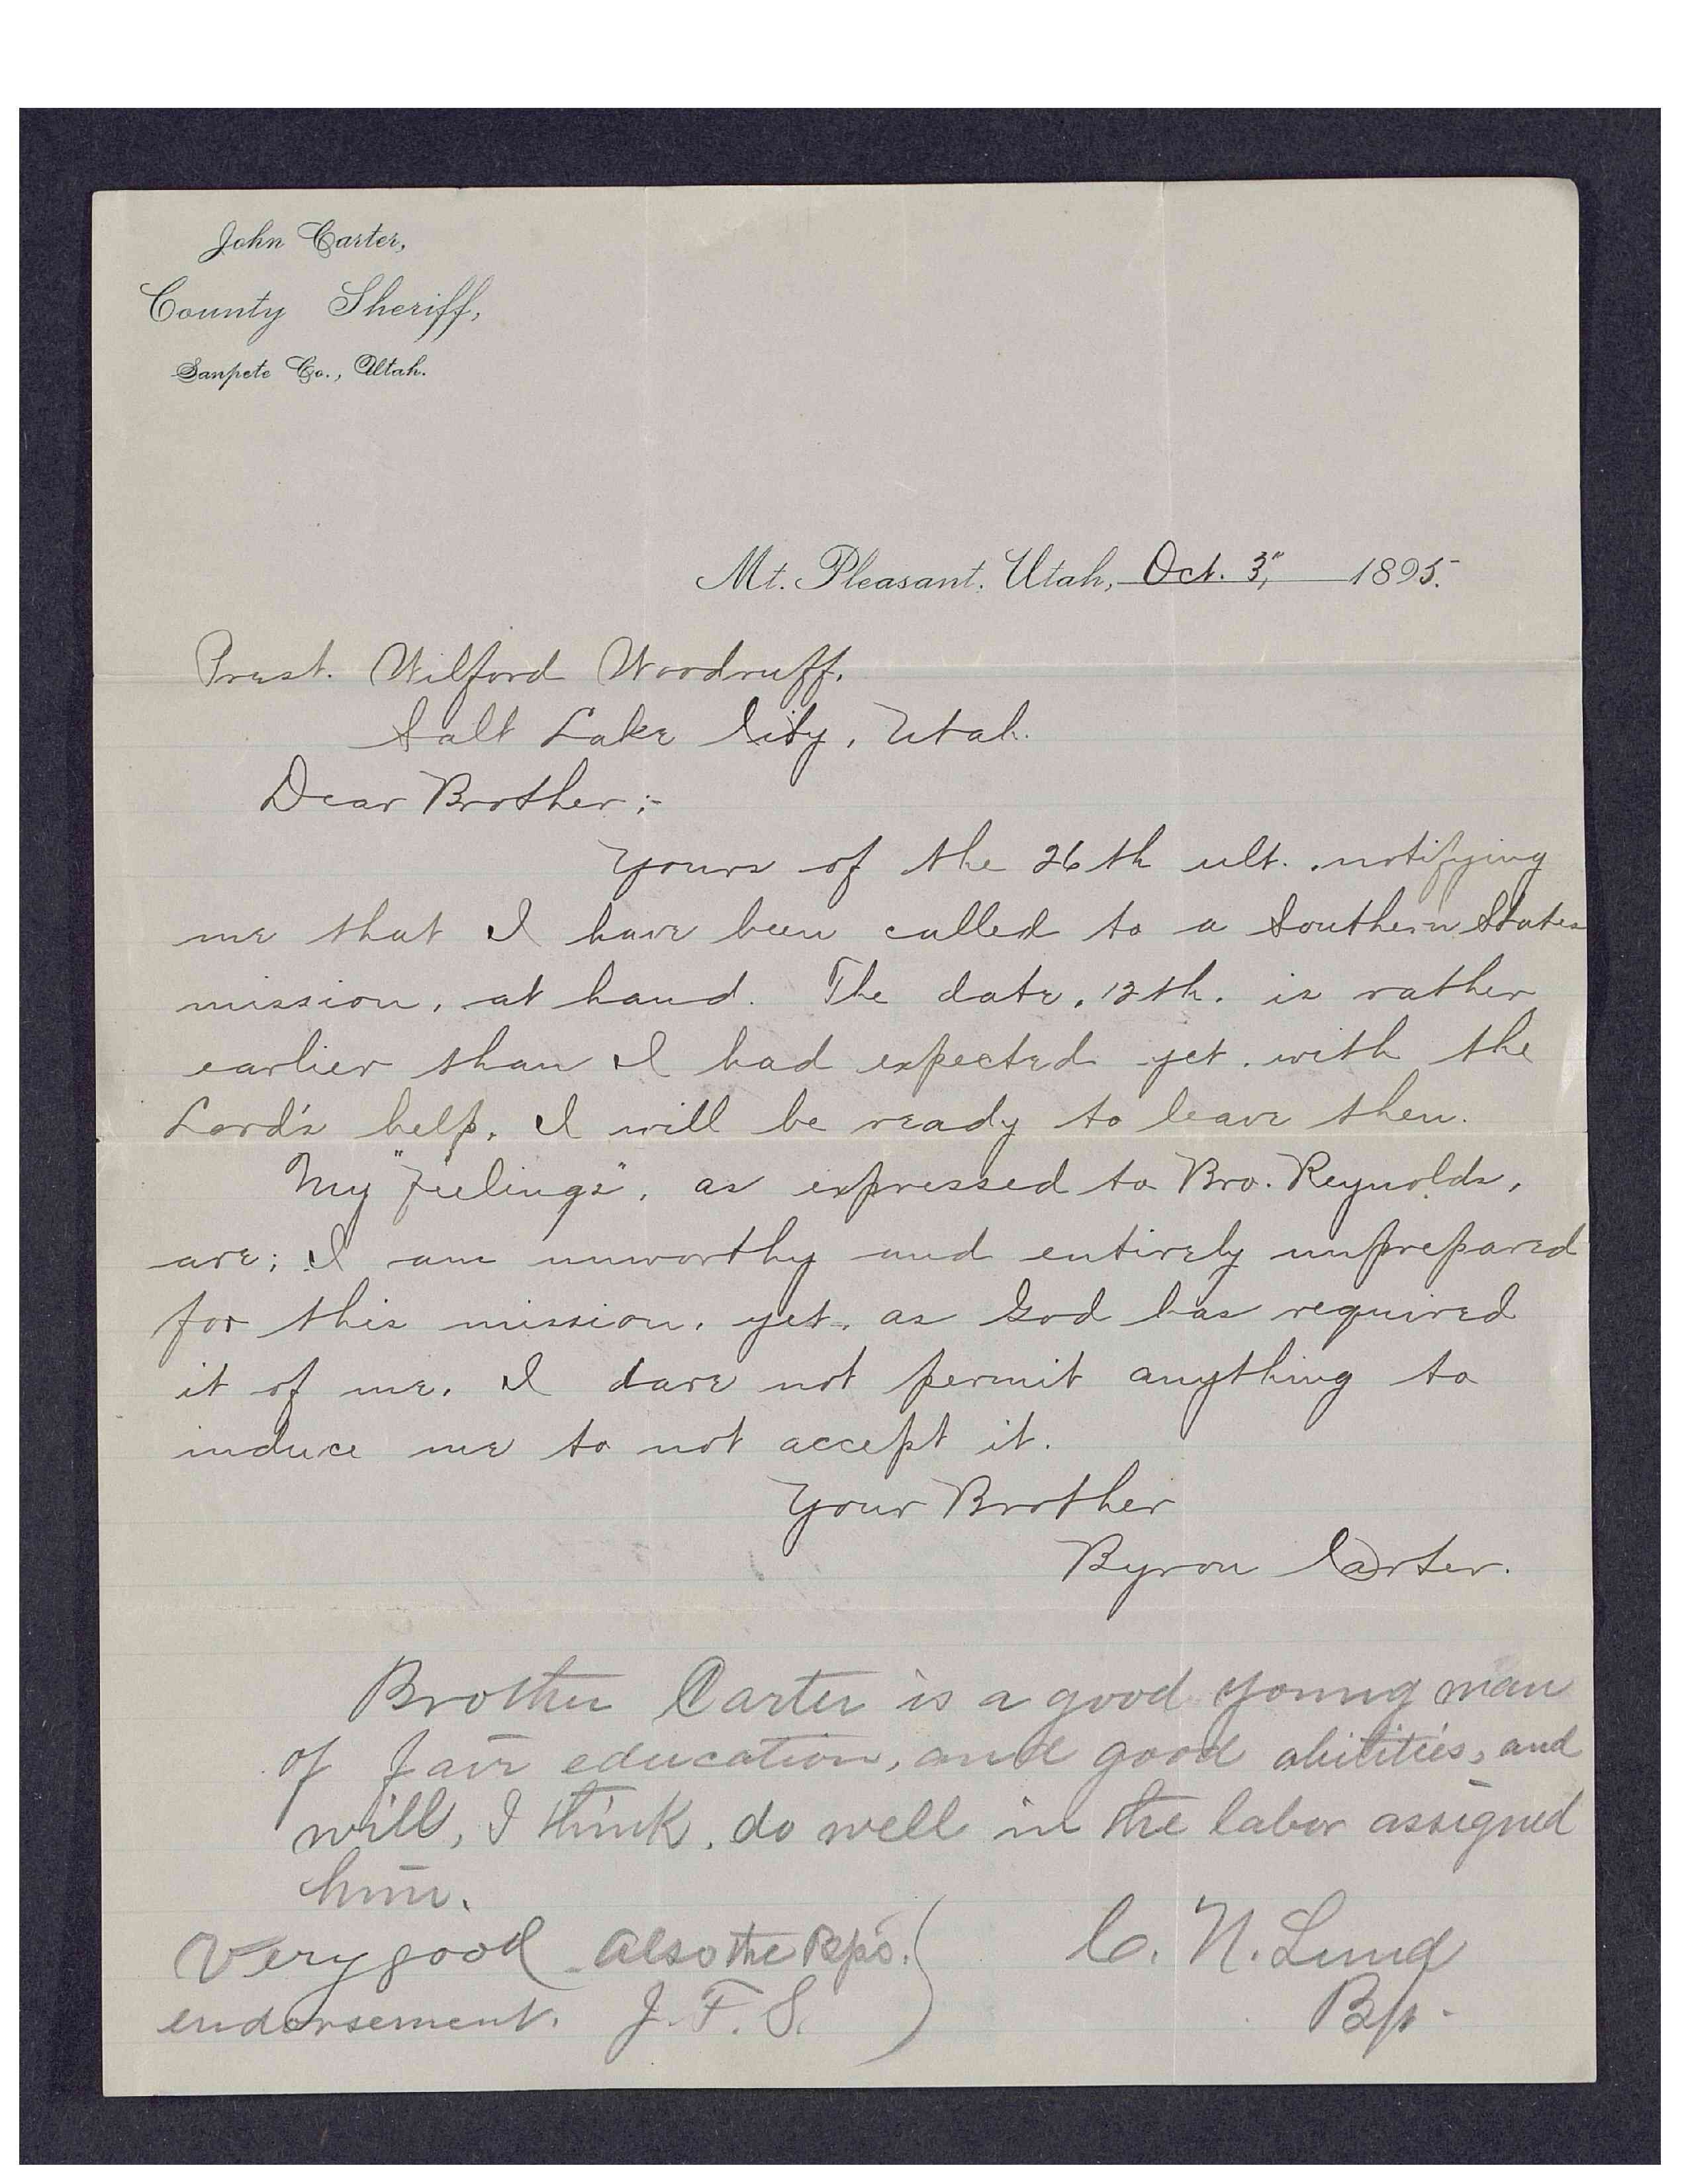 John Carter,
County Sheriff,
Sanpete Co., Utah.
Mt. Pleasant, Utah, Oct. 3", 1895.
Prest. Wilford Woodruff.
Salt Lake City, Utah.
Dear Brother:-
Yours of the 26th ult., notifying
me that I have been called to a Southern States
mission, at hand. The date, 12th, is rather
earlier than I had expected yet, with the
Lord's help, I will be ready to leave then.
My "feelings", as expressed to Bro. Reynolds,
are; I am unworthy and entirely unprepared
for this mission, yet, as God has required
it of me, I dare not permit anything to
induce me to not accept it.
Your Brother
Byron Carter.
Brother Carter is a good young man
of fair education, and good abilities, and
will, I think, do well in the labor assigned
him.
C. N. Lund
Bp.
Very good also the Bp's.
endorsement. J. F. S.